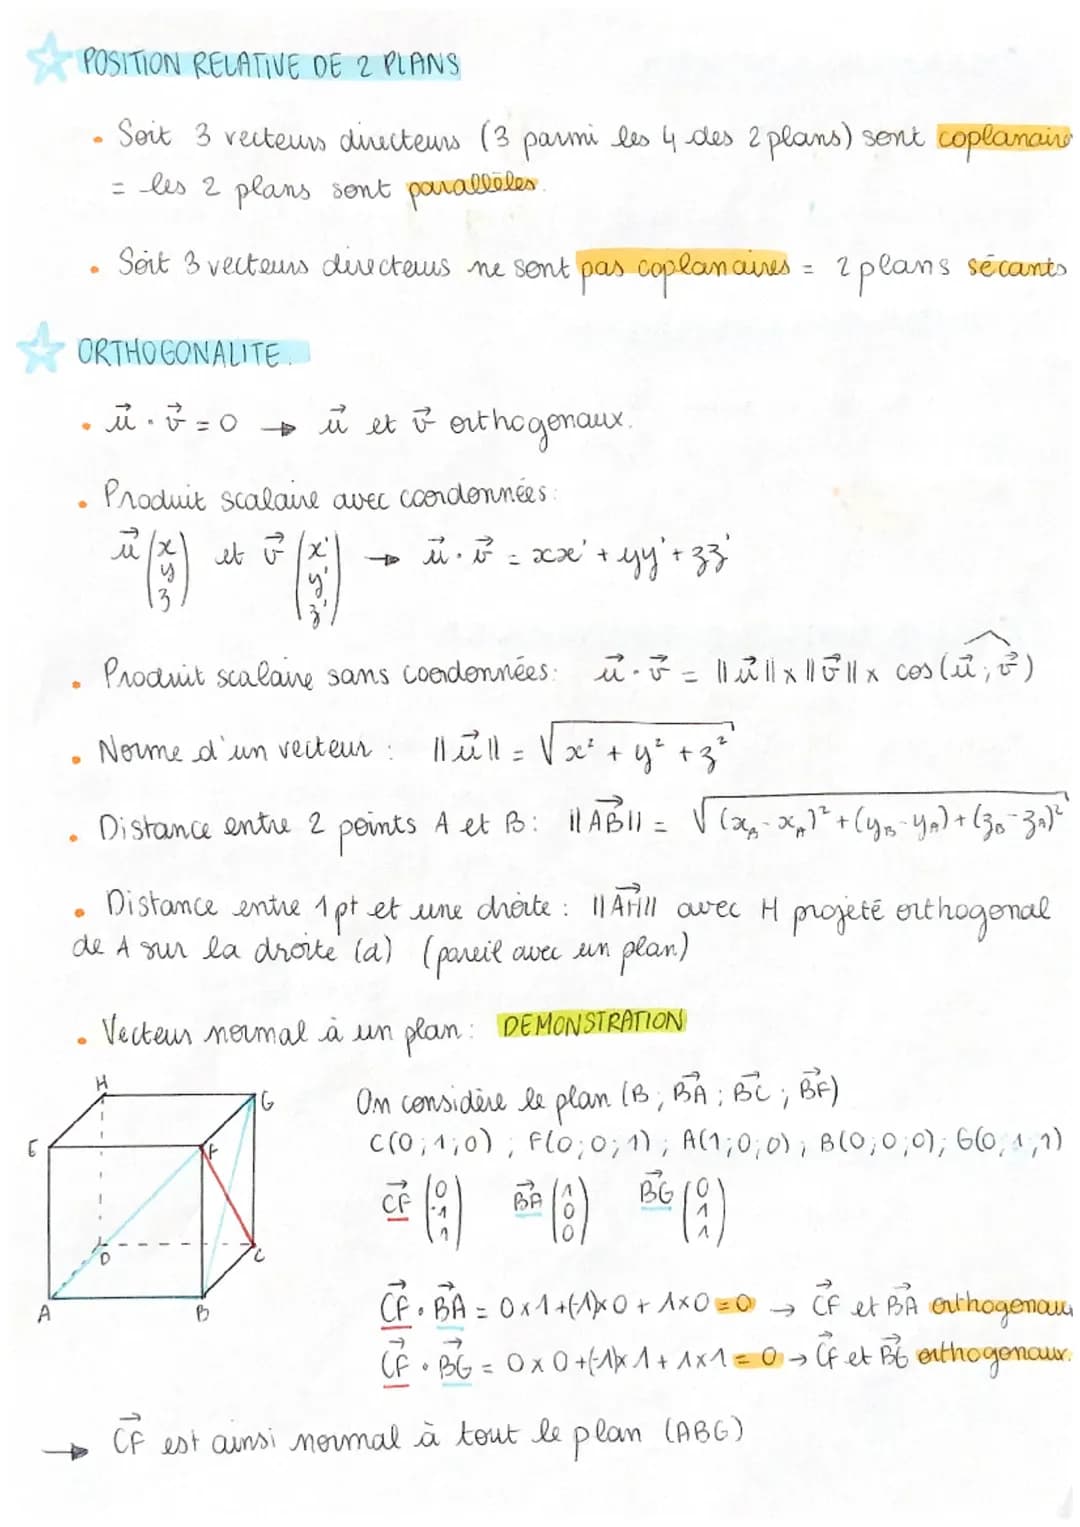 POSITION RELATIVE DE 2 PLANS
• Soit 3 vecteurs directeurs (3 parmi les 4 des 2 plans) sont coplanaire
= les 2 plans sont parallèles.
• Soit 3 vecteurs directeurs ne sont pas coplanaires = 2 plans sécants
ORTHOGONALITE.
• u⃗ · v⃗ = 0 → u⃗ et v⃗ orthogonaux.
• Produit scalaire avec coordonnées:
u⃗ (x y z) et v⃗ (x' y' z') → u⃗ · v⃗ = xx' + yy' + zz'
• Produit scalaire sans coordonnées: u⃗ · v⃗ = ||u⃗|| x ||v⃗|| x cos(u⃗ ; v⃗)
• Norme d'un vecteur : ||u⃗|| = √(x² + y² + z²)
• Distance entre 2 points A et B: ||AB⃗|| = √((xB - xA)² + (yB - yA) + (zB - zA)²)
• Distance entre 1 pt et une droite : ||AH⃗|| avec H projeté orthogonal
de A sur la droite (d) (pareil avec un plan)
• Vecteur normal à un plan: DEMONSTRATION
H
G
E
F
D
C
A
B
On considère le plan (B ; BA⃗ ; BC⃗ ; BF⃗)
C(0 ; 1 ; 0) ; F(0 ; 0 ; 1) ; A(1 ; 0 ; 0) ; B(0 ; 0 ; 0) ; G(0 ; 1 ; 1)
CF⃗ (0 -1 1) BA⃗ (1 0 0) BG⃗ (0 1 1)
CF⃗ · BA⃗ = 0 x 1 + (-1) x 0 + 1 x 0 = 0 → CF⃗ et BA⃗ orthogonaux
CF⃗ · BG⃗ = 0 x 0 + (-1) x 1 + 1 x 1 = 0 → CF⃗ et BG⃗ orthogonaux.
→ CF⃗ est ainsi normal à tout le plan (ABG)